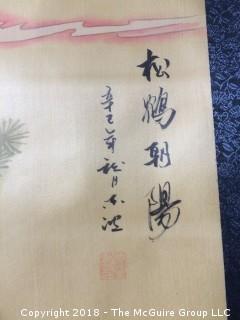 松鶴朝陽
辛巳年
Copyright 2018 - The McGuire Group LLC